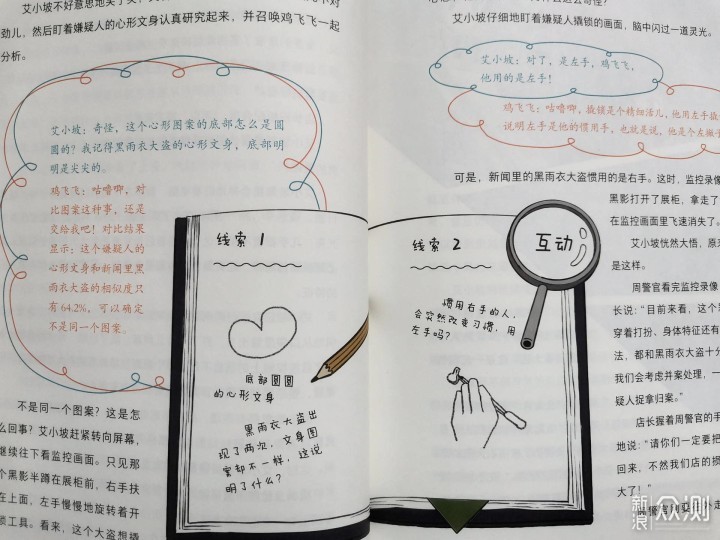 艾小坡不好意思地笑了笑
劲儿，然后盯着嫌疑人的心形文身认真研究起来，并召唤鸡飞飞一起
分析。
艾小坡：奇怪，这个心形图案的底部怎么是圆
圆的？我记得黑雨衣大盗的心形文身，底部明
明是尖尖的。
鸡飞飞：咕噜唧，对
比图案这种事，还是
交给我吧！对比结果
显示：这个嫌疑人的
心形文身和新闻里黑
雨衣大盗的相似度只
有64.2%，可以确定
不是同一个图案。
不是同一个图案？这是怎
么回事？艾小坡赶紧转向屏幕，
继续往下看监控画面。只见那
个黑影半蹲在展柜前，右手扶
在上面，左手慢慢地旋转着开
锁工具。看来，这个大盗想撬
线索 1
底部圆圆
的心形文身
黑雨衣大盗出
现了两次，文身图
案却不一样，这说
明了什么？
艾小坡仔细地盯着嫌疑人撬锁的画面，脑中闪过一道灵光。
艾小坡：对了，是左手，鸡飞飞，
他用的是左手！
鸡飞飞：咕噜唧，撬锁是个精细活儿，他用左手撬
说明左手是他的惯用手，也就是说，他是个左撇子
可是，新闻里的黑雨衣大盗惯用的是右手。这时，监控录像
黑影打开了展柜，拿走了
在监控画面里飞速消失了。
艾小坡恍然大悟，原来
是这样。
周警官看完监控录像
长说：“目前来看，这个
穿着打扮、身体特征还有
法，都和黑雨衣大盗十分
我们会考虑并案处理，一
疑人捉拿归案。”
店长握着周警官的手
地说：“请你们一定要把
回来，不然我们店的损
大了！”
线索 2
互动
惯用右手的人，
会突然改变习惯，用
左手吗？
新浪众测